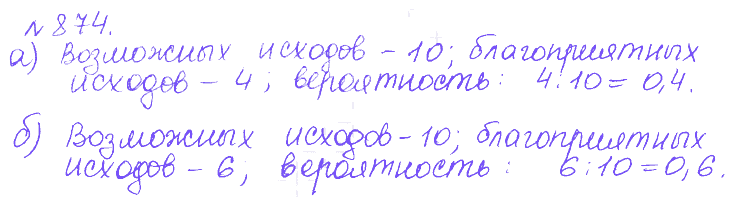 № 874.
а) Возможных исходов – 10; благоприятных
исходов – 4; вероятность: 4:10 = 0,4.
б) Возможных исходов – 10; благоприятных
исходов – 6; вероятность: 6:10 = 0,6.